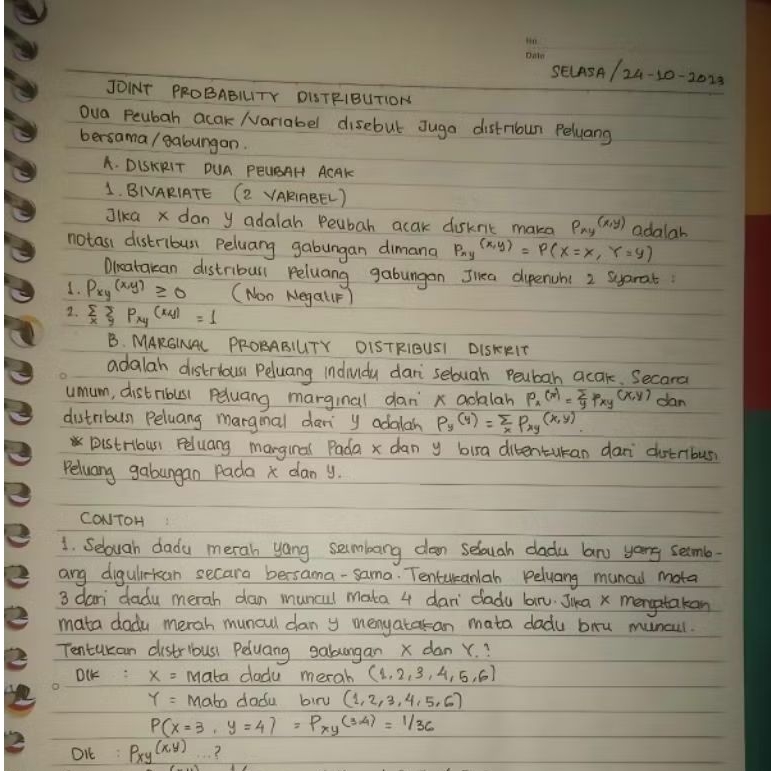 No
Date
SELASA / 24-10-2023
JOINT PROBABILITY DISTRIBUTION
Dua Peubah acak /variabel disebut Juga distribusi Peluang
bersama/gabungan.
A. DISKRIT DUA PEUBAH ACAK
1. BIVARIATE (2 VARIABEL)
Jika x dan y adalah Peubah acak diskrit maka Pxy(x,y) adalah
notasi distribusi Peluang gabungan dimana Pxy(x,y) = P(X=x, Y=y)
Dikatakan distribusi Peluang gabungan Jika dipenuhi 2 Syarat :
1. Pxy(x,y) ≥ 0 (Non Negatif)
2. Σx Σy Pxy(x,y) = 1
B. MARGINAL PROBABILITY DISTRIBUSI DISKRIT
adalah distribusi Peluang individu dari sebuah Peubah acak. Secara
umum, distribusi Peluang marginal dari x adalah Px(x) = Σy Pxy(x,y) dan
distribusi Peluang marginal dari y adalah Py(y) = Σx Pxy(x,y).
* Distribusi Peluang marginal Pada x dan y bisa ditentukan dari distribusi
Peluang gabungan Pada x dan y.
CONTOH :
1. Sebuah dadu merah yang seimbang dan sebuah dadu biru yang seimb-
ang digulirkan secara bersama-sama. Tentukanlah Peluang muncul mata
3 dari dadu merah dan muncul mata 4 dari dadu biru. Jika x mengatakan
mata dadu merah muncul dan y menyatakan mata dadu biru muncul.
Tentukan distribusi Peluang gabungan X dan Y.!
Dik : X = Mata dadu merah (1,2,3,4,5,6)
Y = Mata dadu biru (1,2,3,4,5,6)
P(X=3, y=4) = Pxy(3,4) = 1/36
Dit : Pxy(x,y) ...?